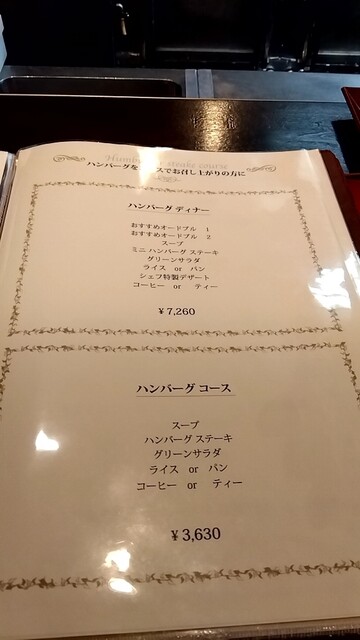 steaks course
ハンバーグを スでお召し上がりの方に
ハンバーグ ディナー
おすすめオードブル 1
おすすめオードブル 2
スープ
ミニ ハンバーグ ステーキ
グリーンサラダ
ライス or パン
シェフ特製デザート
コーヒー or ティー
¥7,260
ハンバーグ コース
スープ
ハンバーグ ステーキ
グリーンサラダ
ライス or パン
コーヒー or ティー
¥3,630